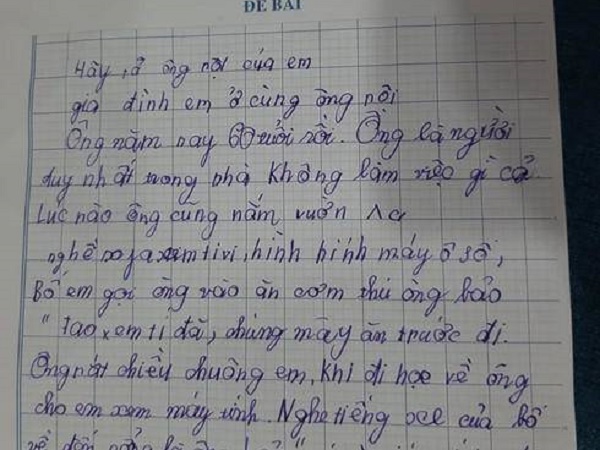 ĐỀ BÀI
Hãy tả ông nội của em
gia đình em ở cùng ông nội
Ông năm nay 60 tuổi rồi. Ông là người
duy nhất trong nhà không làm việc gì cả
Lúc nào ông cũng nằm vươn ra
nghế xem tivi, hình hính máy ô sồ,
Bố em gọi ông vào ăn cơm thì ông bảo
"Tao xem tí đã, chúng mày ăn trước đi.
Ông rất chiều chuông em, khi đi học về ông
cho em xem máy tính. Nghe tiếng xe của bố
về đến